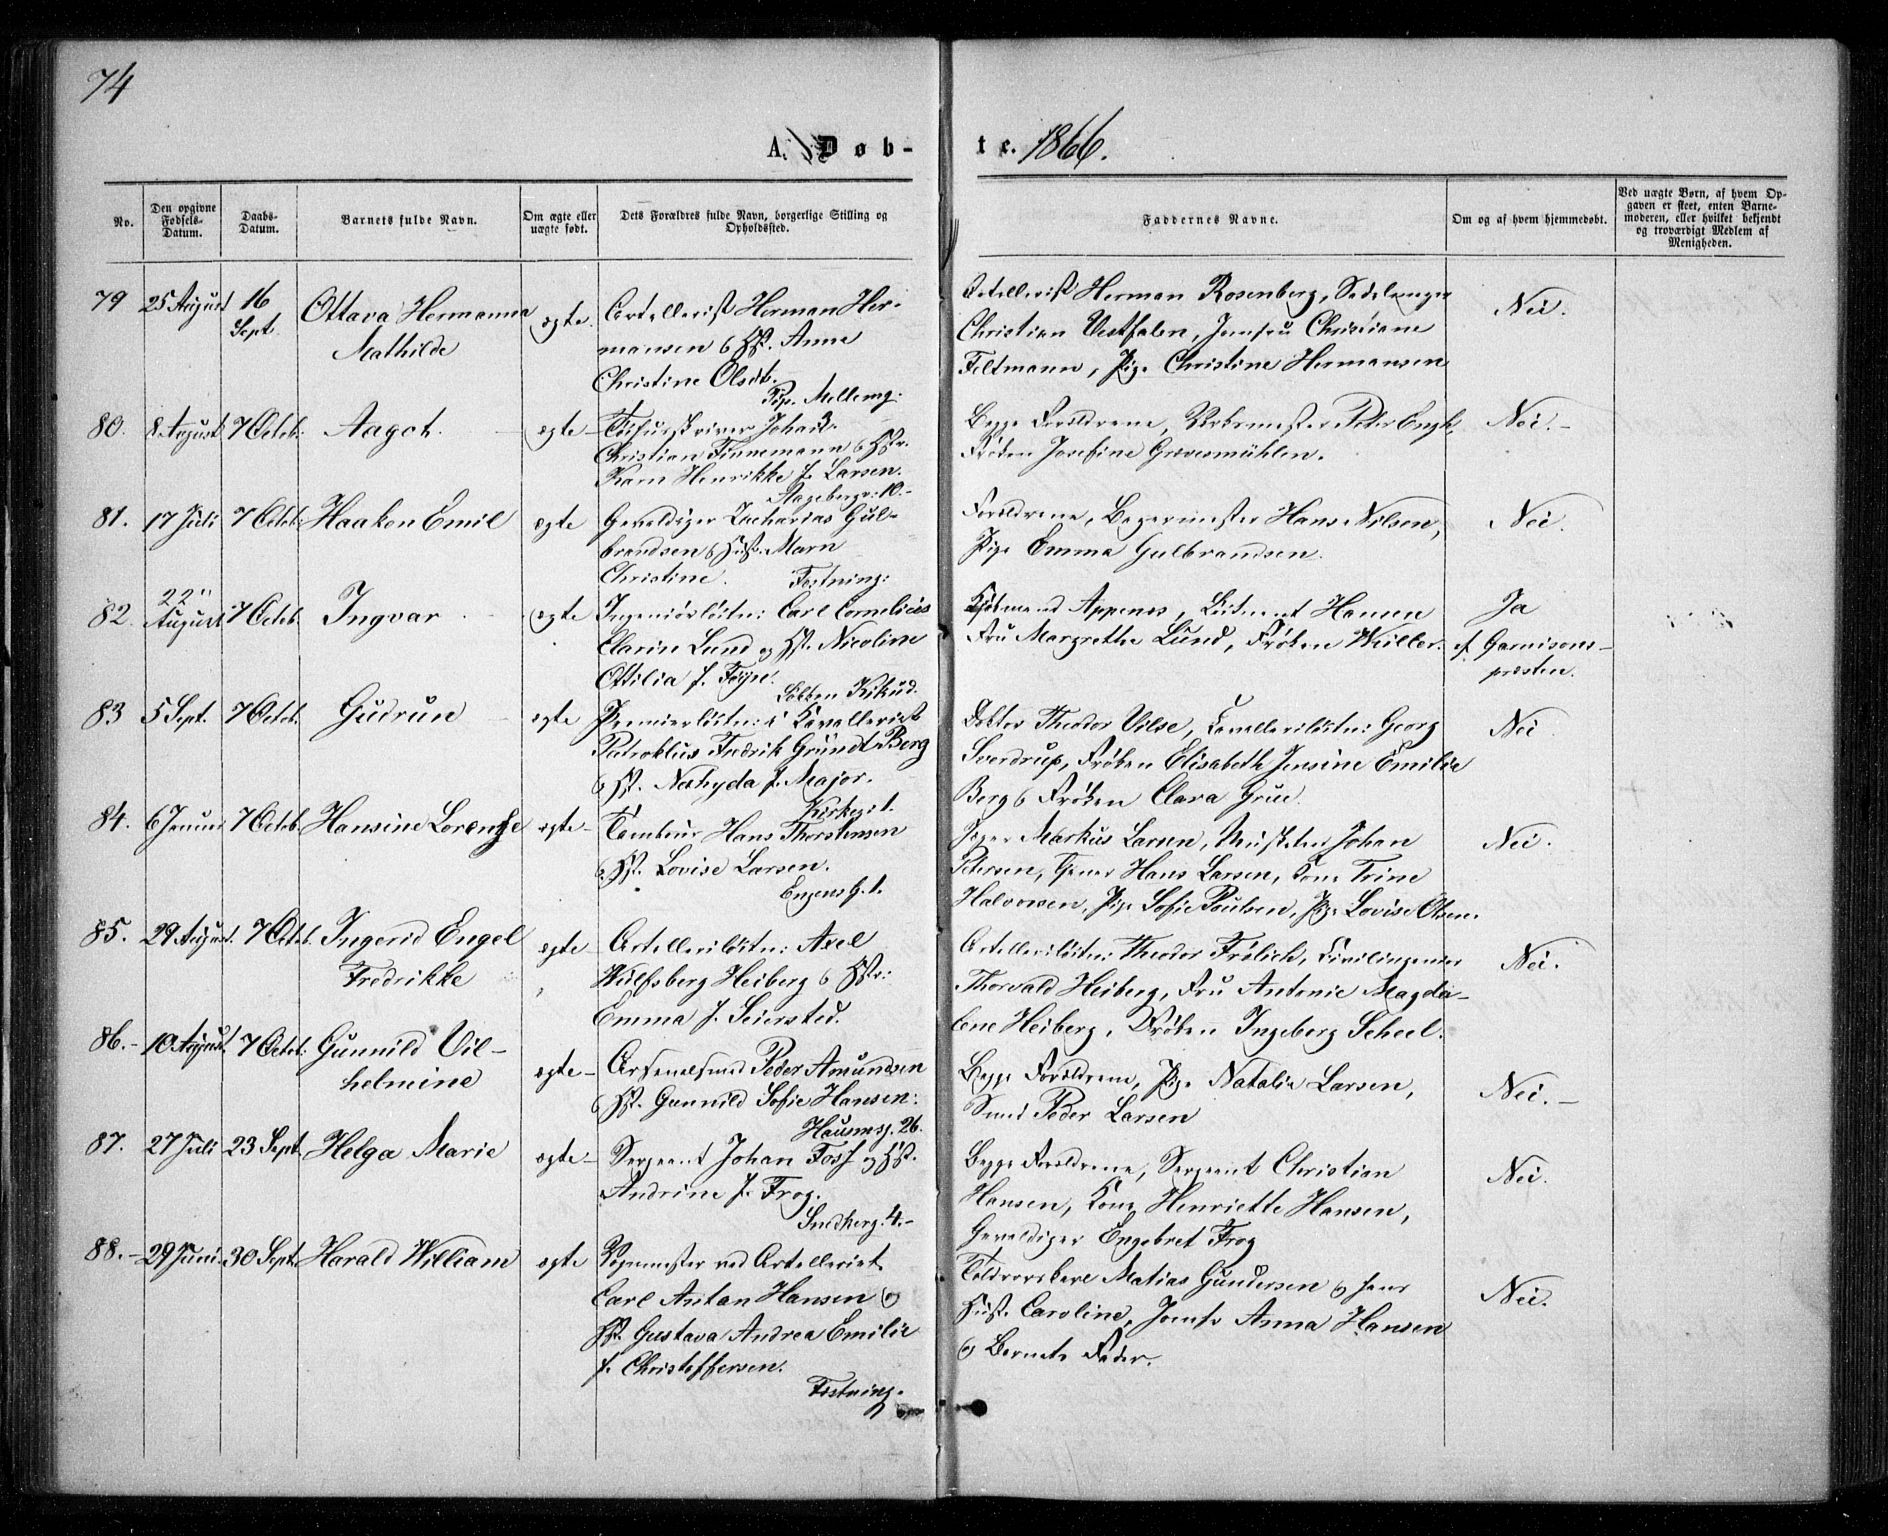 74
A. Døb-
te. 1866.
No.
Den opgivne Fødsels-Datum.
Daabs-Datum.
Barnets fulde Navn.
Om ægte eller uægte født.
Dets Forældres fulde Navn, borgerlige Stilling og Opholdssted.
Faddernes Navne.
Om og af hvem hjemmedøbt.
Ved uægte Børn, af hvem Op-
gaven er skeet, enten Barne-
moderen, eller hvilket bekjendt
og troværdigt Medlem af
Menigheden.
79 25 August 16 Sept. Ottava Hermanna Mathilde ægte.
Artellerist Herman Her-
mansen o Hst. Anne
Christine Olsdt.
Pip. Mellemg:
Artellerist Herman Rosenberg, Sadelmager
Christian Vestfalen, Jomfru Christiane
Feltmann, Pige Christine Hermansen
Nei.
80. 8 August 7 Octob: Aagot. ægte
Christian Finnemann o Hstr.
Karn Henrikke f. Larsen.
Begge Forældrene, Peter Engh,
Frøken Josefine Grevesmühlen.
Nei.
81. 17 Juli 7 Octob: Haaken Emil ægte
Gevaldiger Zacharias Gul-
brandsen o Hust. Marn
Christine.
Fæstning:
Forældrene, Bøgermester Hans Nilsen,
Pige Emma Gulbrandsen.
Nei.
82. 22 August 7 Octob. Ingvar ægte
Ingeniørløitn: Carl Cornelius
Clarin Lund og Hst. Nicoline
Ottilia f. Føyn.
Kjøbmand Appenes, Løitnant Hansen
Fru Margrethe Lund, Frøken Müller.
Ja
af Garnisons-
presten.
83 5 Sept. 7 Octob. Gudrun ægte
Premierløitn: i Kavalleriet
Patroklus Fredrik Gründt Berg
o Hst. Nathyda f. Major.
Kirkeg: 1.
Doktor Theodor Vilse, Kavalleriløitn: Georg
Sverdrup, Frøken Elisabeth Jensine Emilie
Berg o Frøken Clara Grue.
Nei
84. 6 Januar 7 Octob. Hansine Lorentze ægte
Tambour Hans Thorstensen
o Hst. Lovise Larsen.
Engens g. 1.
Jæger Markus Larsen, Musketer Johan
Petersen, Hans Larsen, Kone Trine
Halvorsen, Pige Sofie Poulsen, Pige Lovise Olsen.
Nei.
85. 29 August. 7 Octob. Ingerid Engel Fredrikke ægte
Artelleriløitn: Axel
Wulfsberg Heiberg o Hstr:
Emma f. Seiersted.
Artelleriløitn: Theodor Frølich, Civilingeniør
Thorvald Heiberg, Fru Antonie Magda-
lene Heiberg, Frøken Ingeborg Scheel.
Nei.
86. 10 August. 7 Octob: Gunnild Vil-
helmine ægte
Arsenalsmed Peder Amundsen
o Hst. Gunnild Sofie Hansen.
Hausmsg. 26.
Begge Forældrene, Pige Natalia Larsen,
Smed Peder Larsen
Nei.
87. 27 Juli 23 Sept. Helga Marie ægte
Sergeant Johan Foss og Hst.
Andrine f. Frog.
Smedberg: 4.
Begge Forældrene, Sergeant Christian
Hansen, Kone Henriette Hansen,
Gevaldiger Engebret Frog
Nei.
88. 29 Juni. 30 Sept. Harald William ægte
Vognmester ved Artelleriet
Carl Anton Hansen o
Hst. Gustava Andrea Emilie
f. Christoffersen.
Fæstning.
Matias Gundersen o hans
Hust. Caroline, Jomfr Anna Hansen
o Barnets Fader.
Nei.